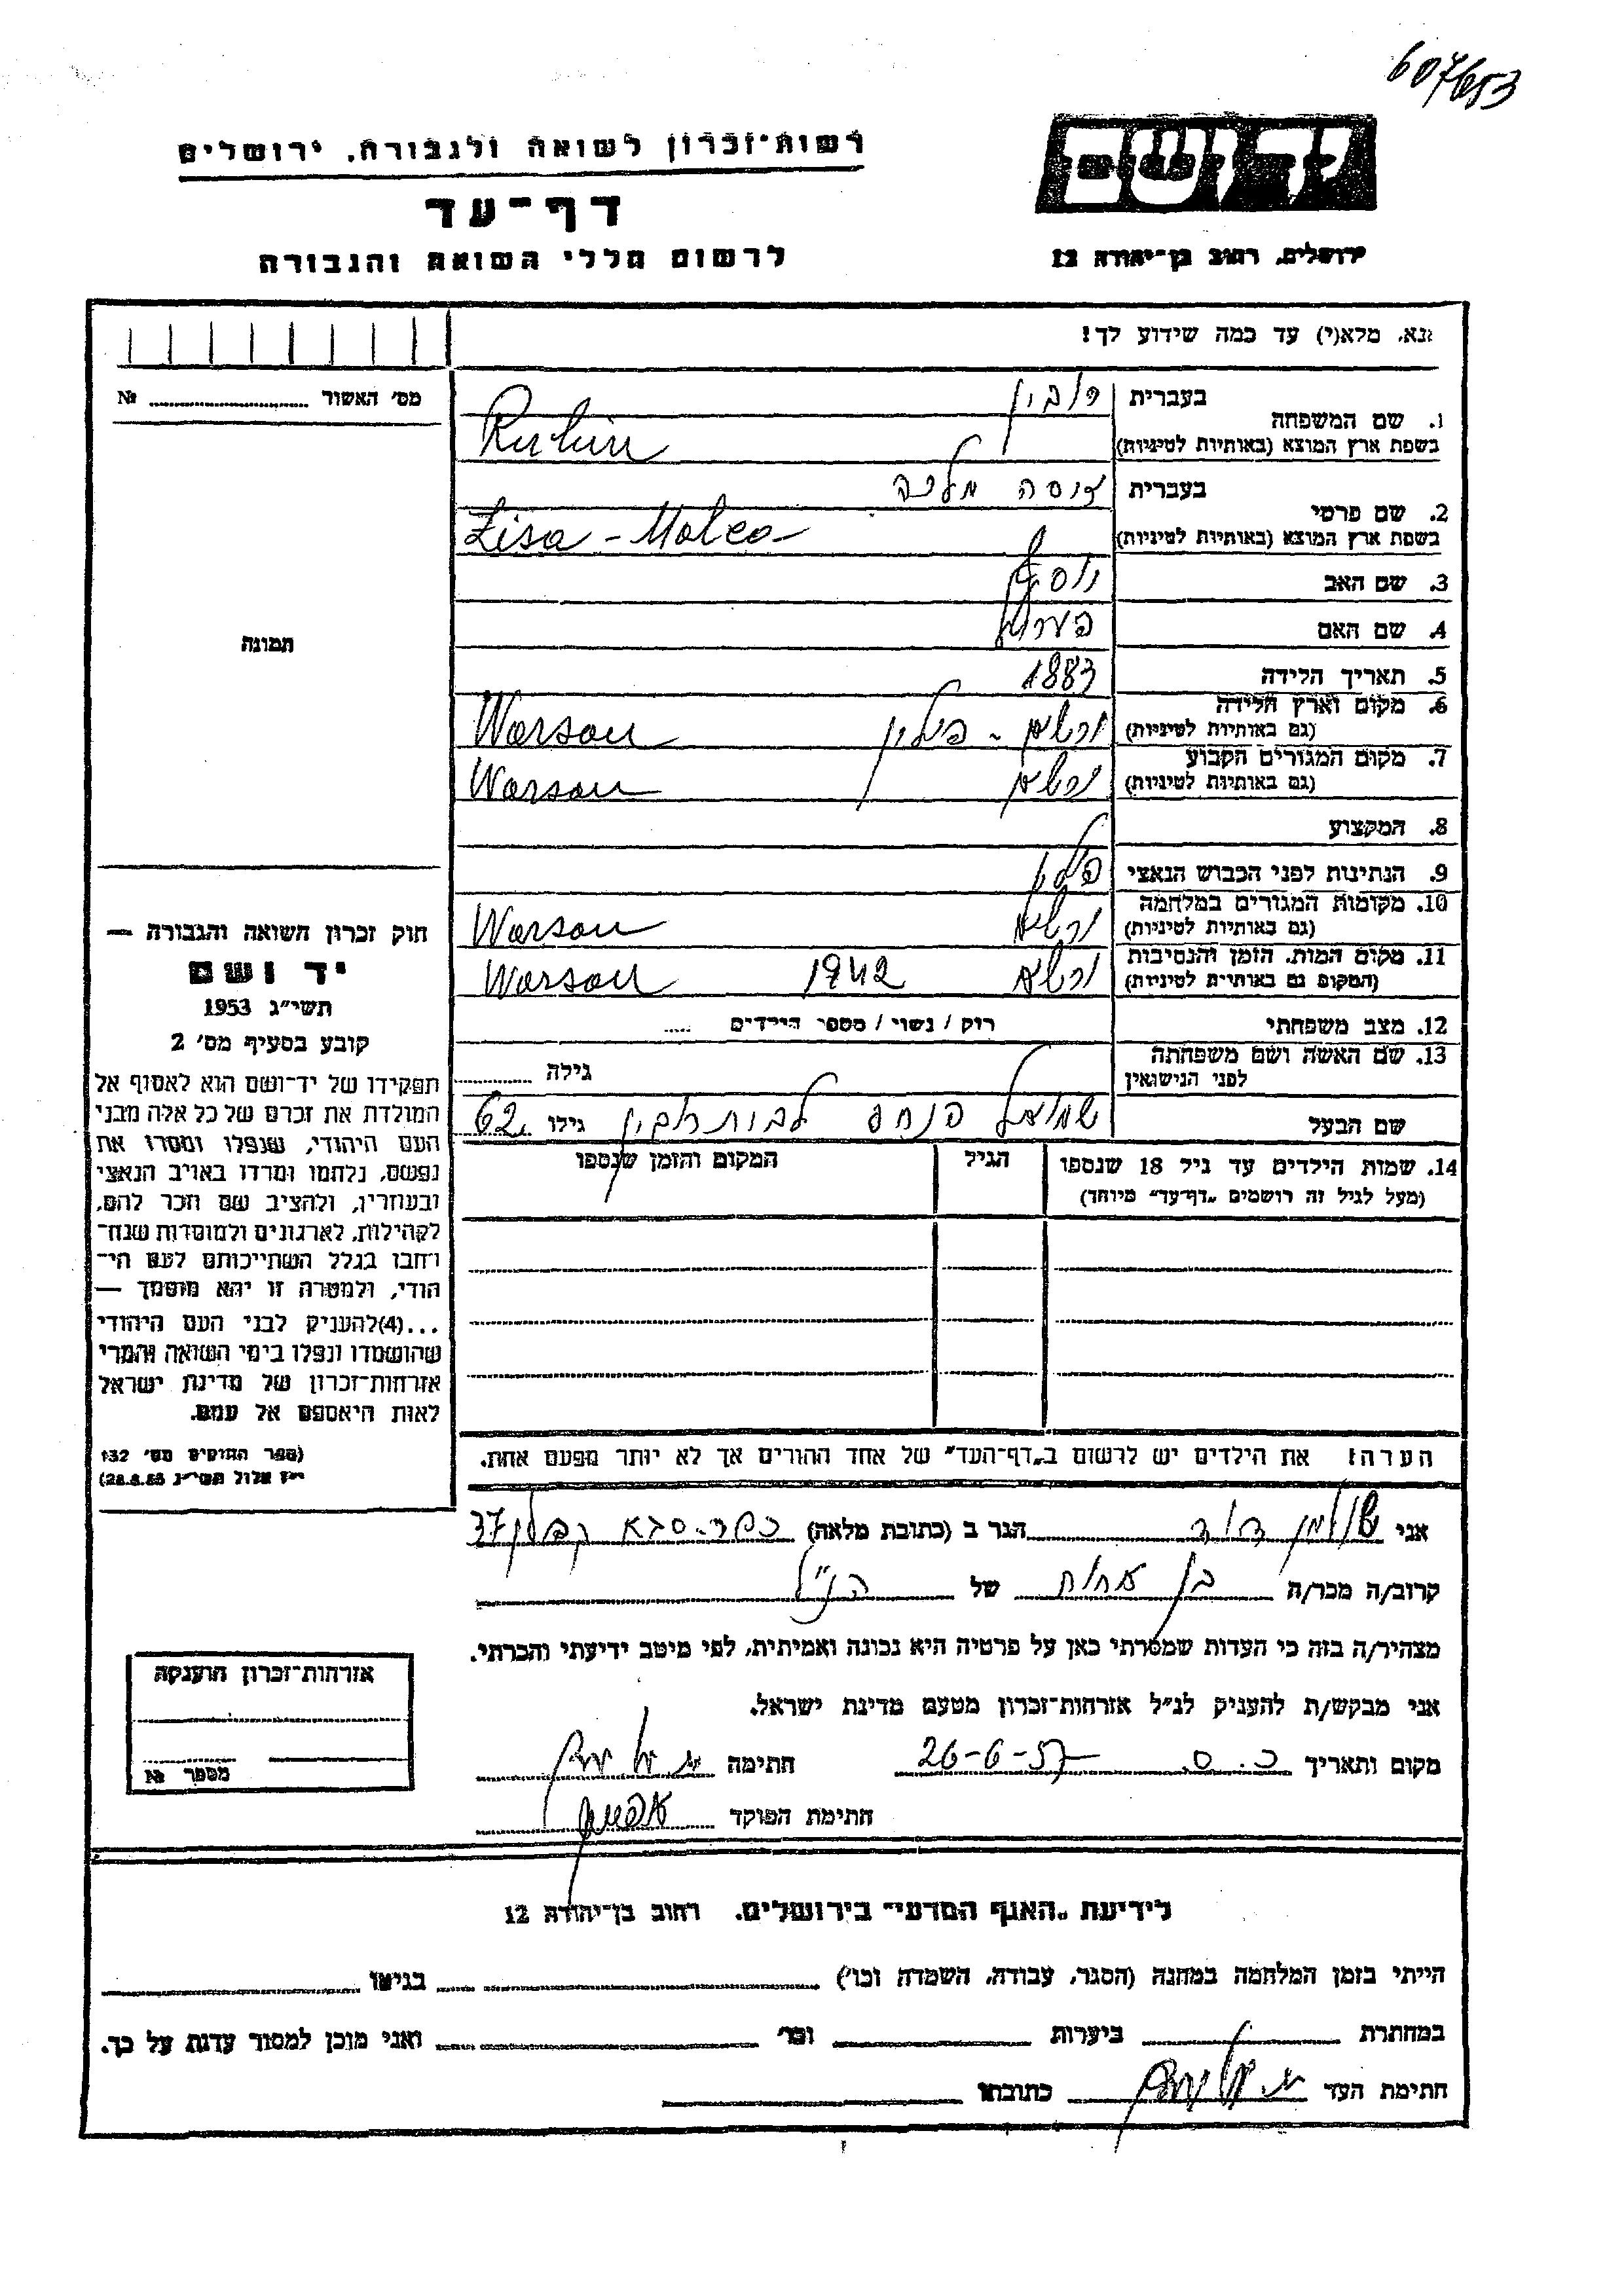 607653
רשות-זכרון לשואה ולגבורה, ירושלים
יד ושם
דף-עד
לרשום חללי השואה והגבורה
ירושלים, רחוב בן-יהודה 12
נא, מלא(י) עד כמה שידוע לך!
מס' האשור № 
1. שם המשפחה בעברית רובין
בשפת ארץ המוצא (באותיות לטיניות) Rubin
2. שם פרטי בעברית מלכה
בשפת ארץ המוצא (באותיות לטיניות) Zisa - Malca
3. שם האב יוסף
4. שם האם
5. תאריך הלידה 1883
6. מקום וארץ הלידה (גם באותיות לטיניות) ורשא - פולין Warsau
7. מקום המגורים הקבוע (גם באותיות לטיניות) ורשא Warsau
8. המקצוע
9. הנתינות לפני הכבוש הנאצי
10. מקומות המגורים במלחמה (גם באותיות לטיניות) ורשא Warsau
11. מקום המות, הזמן והנסיבות (המקום גם באותיות לטיניות) ורשא 1942 Warsau
12. מצב משפחתי רוק / נשוי / מספר הילדים .....
13. שם האשה ושם משפחתה לפני הנישואין גילה
שם הבעל שמואל פנחס לבית רובין גילו 62
14. שמות הילדים עד גיל 18 שנספו (מעל לגיל זה רושמים „דף-עד" מיוחד) הגיל המקום והזמן שנספו
תמונה
חוק זכרון השואה והגבורה —
יד ושם
תשי"ג 1953
קובע בסעיף מס' 2
תפקידו של יד-ושם הוא לאסוף אל
המולדת את זכרם של כל אלה מבני
העם היהודי, שנפלו ומסרו את
נפשם, נלחמו ומרדו באויב הנאצי
ובעוזריו, ולהציב שם וזכר להם,
לקהילות, לארגונים ולמוסדות שנח-
רבו בגלל השתייכותם לעם הי-
הודי, ולמטרה זו יהא מוסמך —
...(4)להעניק לבני העם היהודי
שהושמדו ונפלו בימי השואה והמרי
אזרחות-זכרון של מדינת ישראל
לאות היאספם אל עמם.
(ספר החוקים מס' 132
י"ז אלול תשי"ג
הערה: את הילדים יש לרשום ב„דף-העד" של אחד ההורים אך לא יותר מפעם אחת.
אני שולמן דוד הגר ב (כתובת מלאה) כפר-סבא קפלן 37
קרוב/ה מכר/ה בן אחות של הנ"ל
מצהיר/ה בזה כי העדות שמסרתי כאן על פרטיה היא נכונה ואמיתית, לפי מיטב ידיעתי והכרתי.
אני מבקש/ת להעניק לנ"ל אזרחות-זכרון מטעם מדינת ישראל.
מקום ותאריך כ.ס. 26-6-57 חתימה
חתימת הפוקד
אזרחות-זכרון הוענקה
מספר №
לידיעת „האגף המדעי" בירושלים, רחוב בן-יהודה 12
הייתי בזמן המלחמה במחנה (הסגר, עבודה, השמדה וכו') בגיטו
במחתרת ביערות וכו' ואני מוכן למסור עדות על כך.
חתימת העד כתובתו